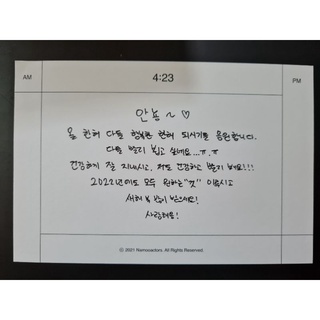 AM
4:23
PM
안농~♡
올 한해 다들 행복한 한해 되시기를 응원합니다.
다들 빨리 보고 싶네요...ㅠ.ㅠ
건강하게 잘 지내시고, 저도 건강하고 밝게 봬요!!!
2022년에도 모두 원하는 "것" 이루시고
새해 복 많이 받으세요!
사랑해요!
ⓒ 2021 Namooactors. All Rights Reserved.